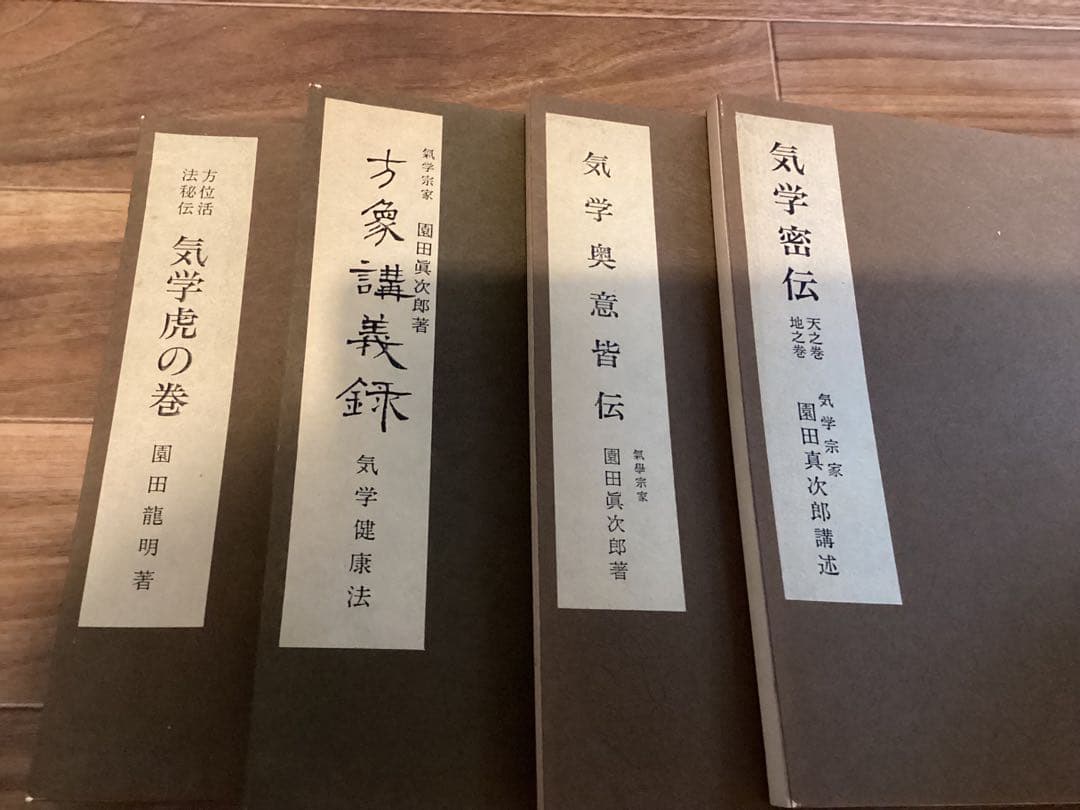 方位活
法秘伝
気学虎の巻
園田龍明著
氣学宗家
園田眞次郎著
方象講義録
気学健康法
気学奥意皆伝
氣學宗家
園田眞次郎著
気学密伝
天之巻
地之巻
気学宗家
園田真次郎講述